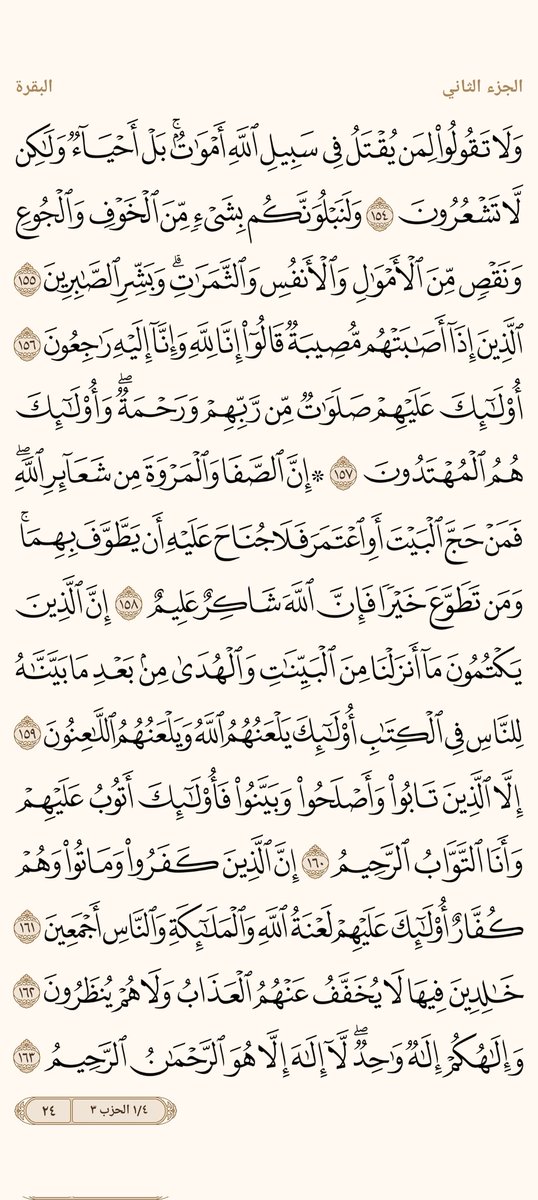 الجزء الثاني
البقرة
وَلَا تَقُولُوا۟ لِمَن يُقْتَلُ فِى سَبِيلِ ٱللَّهِ أَمْوَٰتٌۢ ۚ بَلْ أَحْيَآءٌ وَلَٰكِن
لَّا تَشْعُرُونَ ١٥٤ وَلَنَبْلُوَنَّكُم بِشَىْءٍ مِّنَ ٱلْخَوْفِ وَٱلْجُوعِ
وَنَقْصٍ مِّنَ ٱلْأَمْوَٰلِ وَٱلْأَنفُسِ وَٱلثَّمَرَٰتِ ۗ وَبَشِّرِ ٱلصَّٰبِرِينَ ١٥٥
ٱلَّذِينَ إِذَآ أَصَٰبَتْهُم مُّصِيبَةٌ قَالُوٓا۟ إِنَّا لِلَّهِ وَإِنَّآ إِلَيْهِ رَٰجِعُونَ ١٥٦
أُو۟لَٰٓئِكَ عَلَيْهِمْ صَلَوَٰتٌ مِّن رَّبِّهِمْ وَرَحْمَةٌ ۖ وَأُو۟لَٰٓئِكَ
هُمُ ٱلْمُهْتَدُونَ ١٥٧ ۞ إِنَّ ٱلصَّفَا وَٱلْمَرْوَةَ مِن شَعَآئِرِ ٱللَّهِ ۖ
فَمَنْ حَجَّ ٱلْبَيْتَ أَوِ ٱعْتَمَرَ فَلَا جُنَاحَ عَلَيْهِ أَن يَطَّوَّفَ بِهِمَا ۚ
وَمَن تَطَوَّعَ خَيْرًا فَإِنَّ ٱللَّهَ شَاكِرٌ عَلِيمٌ ١٥٨ إِنَّ ٱلَّذِينَ
يَكْتُمُونَ مَآ أَنزَلْنَا مِنَ ٱلْبَيِّنَٰتِ وَٱلْهُدَىٰ مِنۢ بَعْدِ مَا بَيَّنَّٰهُ
لِلنَّاسِ فِى ٱلْكِتَٰبِ أُو۟لَٰٓئِكَ يَلْعَنُهُمُ ٱللَّهُ وَيَلْعَنُهُمُ ٱللَّٰعِنُونَ ١٥٩
إِلَّا ٱلَّذِينَ تَابُوا۟ وَأَصْلَحُوا۟ وَبَيَّنُوا۟ فَأُو۟لَٰٓئِكَ أَتُوبُ عَلَيْهِمْ
وَأَنَا ٱلتَّوَّابُ ٱلرَّحِيمُ ١٦٠ إِنَّ ٱلَّذِينَ كَفَرُوا۟ وَمَاتُوا۟ وَهُمْ
كُفَّارٌ أُو۟لَٰٓئِكَ عَلَيْهِمْ لَعْنَةُ ٱللَّهِ وَٱلْمَلَٰٓئِكَةِ وَٱلنَّاسِ أَجْمَعِينَ ١٦١
خَٰلِدِينَ فِيهَا لَا يُخَفَّفُ عَنْهُمُ ٱلْعَذَابُ وَلَا هُمْ يُنظَرُونَ ١٦٢
وَإِلَٰهُكُمْ إِلَٰهٌ وَٰحِدٌ ۖ لَّآ إِلَٰهَ إِلَّا هُوَ ٱلرَّحْمَٰنُ ٱلرَّحِيمُ ١٦٣
١/٤ الحزب ٣
٢٤